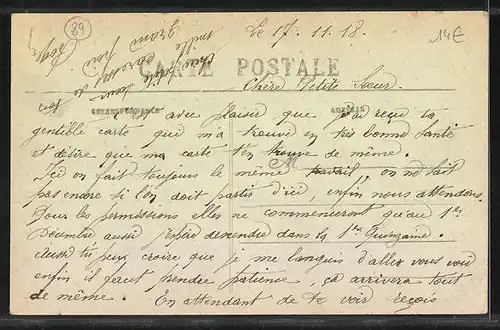 89
Le 17. 11. 18.
14€
CARTE POSTALE
Chère Petite Sœur.
CORRESPONDANCE
C'est avec plaisir que j'ai reçu ta
gentille carte qui m'a trouvé en très bonne santé
et désire que ma carte t'en trouve de même.
Ici on fait toujours le même travail, on ne sait
pas encore si l'on doit partir d'ici, enfin nous attendons.
Pour les permissions elles ne commenceront qu'au 1er
Décembre aussi j'espère descendre dans la 1ère Quinzaine.
Aussi tu peux croire que je me languis d'aller vous voir
enfin il faut prendre patience, ça arrivera tout
de même. En attendant de te voir reçois
chère petite sœur
mille caresses de ton
grand frère